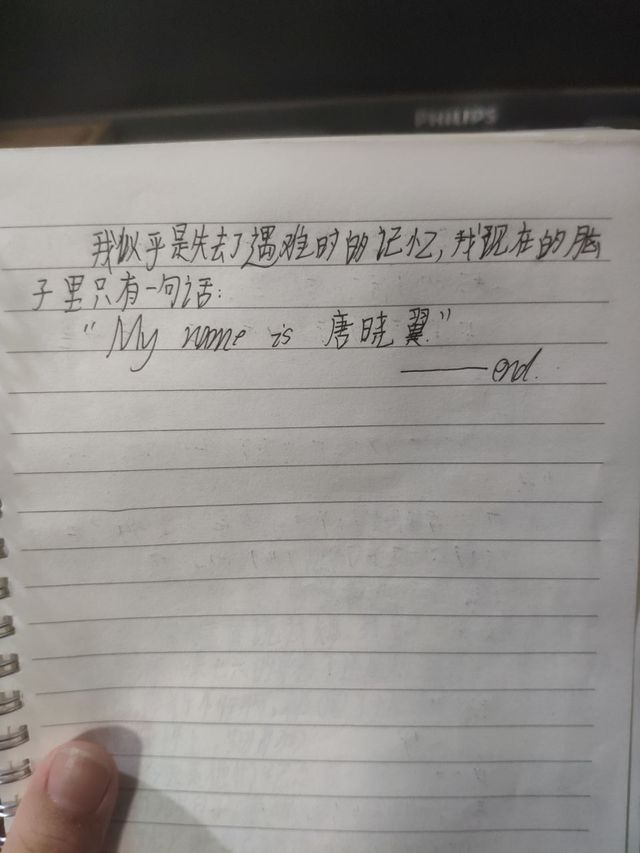 PHILIPS
我似乎是失去了遇难时的记忆，我现在的脑
子里只有一句话：
“My name is 唐晓翼”
——end.